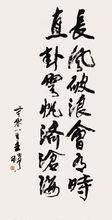 長風破浪會有時
直卦雲帆濟滄海